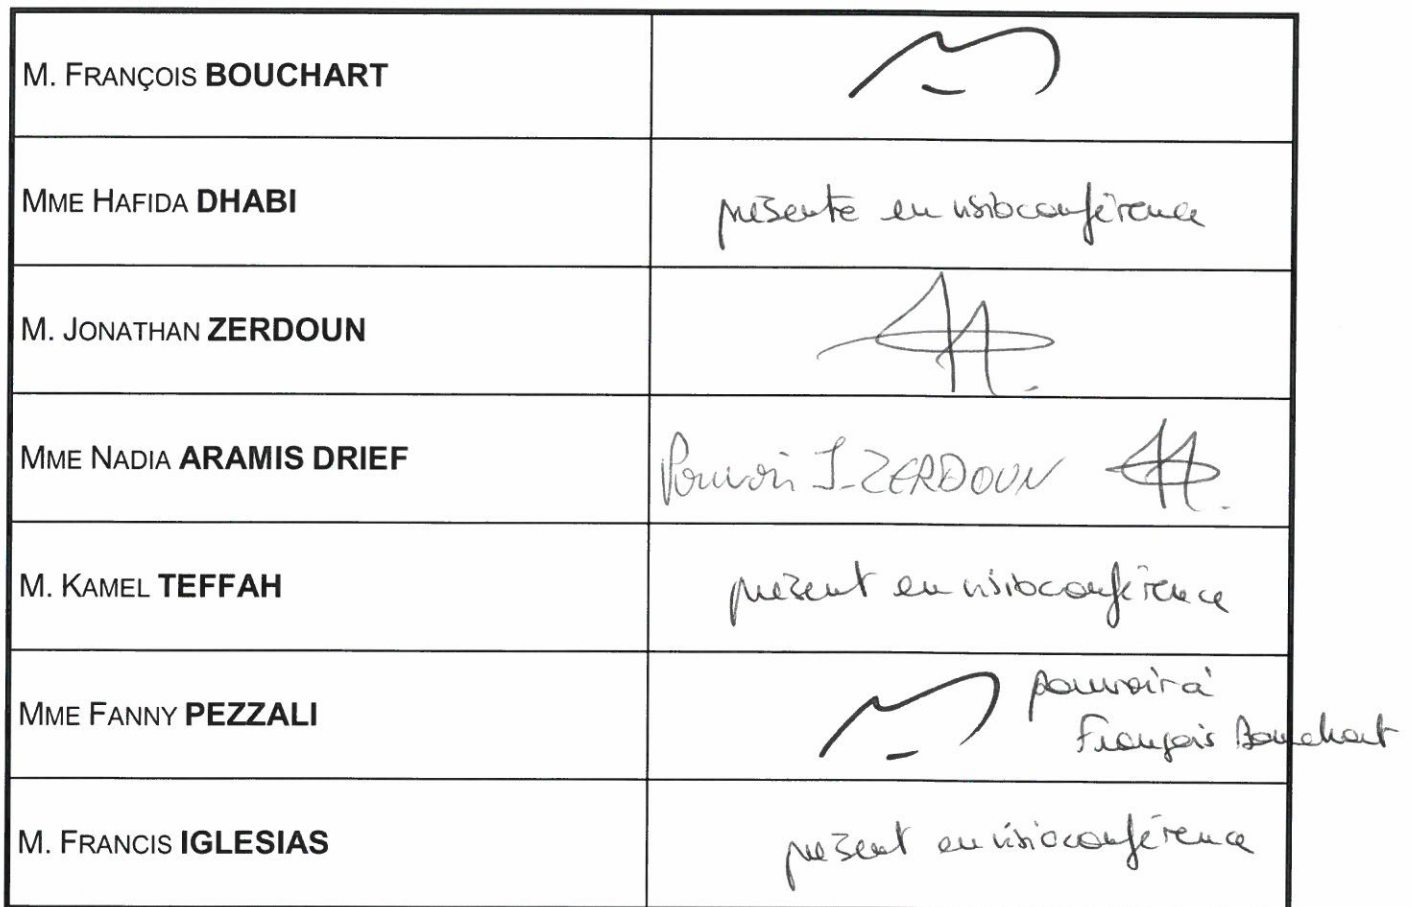 M. FRANÇOIS BOUCHART
MME HAFIDA DHABI
présente en visioconférence
M. JONATHAN ZERDOUN
MME NADIA ARAMIS DRIEF
Pouvoir J-ZERDOUN
M. KAMEL TEFFAH
présent en visioconférence
MME FANNY PEZZALI
pouvoir à
François Bouchart
M. FRANCIS IGLESIAS
présent en visioconférence